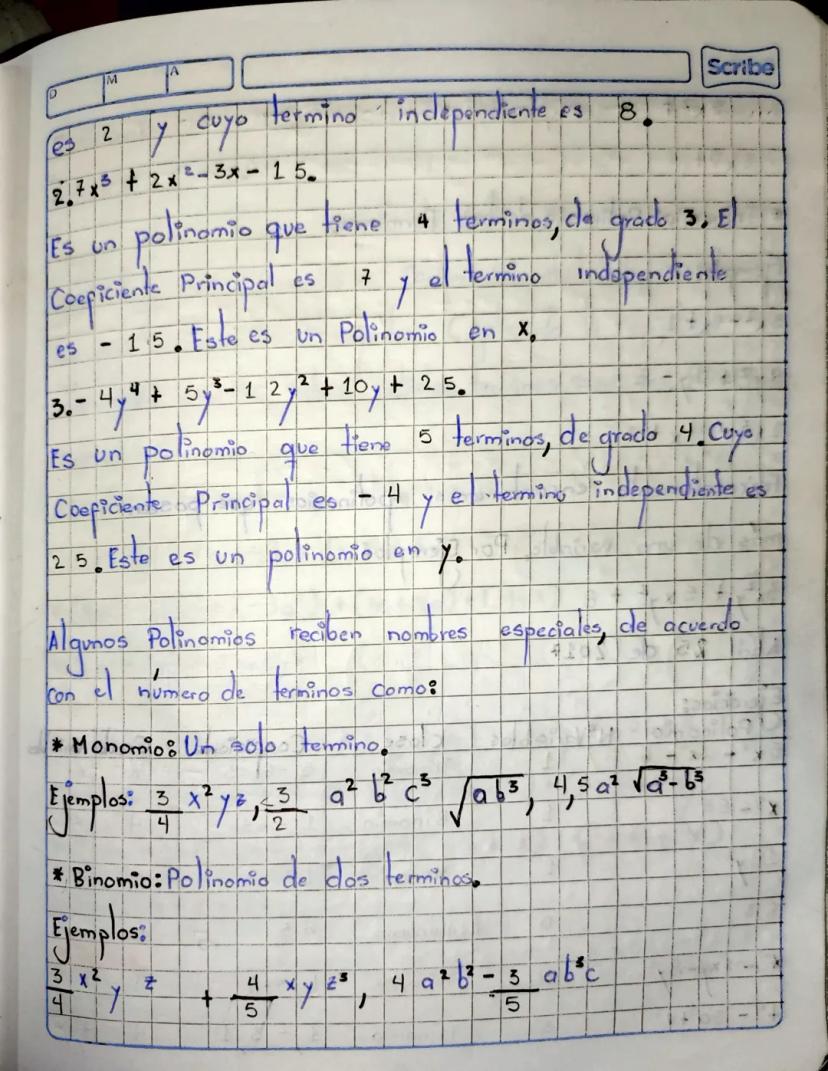 D M A Scribe
es 2 y cuyo termino independiente es 8.
2. 7x³ + 2x² - 3x - 15.
Es un polinomio que tiene 4 terminos, de grado 3. El
Coeficiente Principal es 7 y el termino independiente
es - 15. Este es un Polinomio en x.
3. - 4y⁴ + 5y³ - 12y² + 10y + 25.
Es un polinomio que tiene 5 terminos, de grado 4. Cuyo
Coeficiente Principal es - 4 y el termino independiente es
25. Este es un polinomio en y.
Algunos Polinomios reciben nombres especiales, de acuerdo
con el número de terminos como:
* Monomio: Un solo termino.
Ejemplos: 3/4 x² yz, -3/2 a² b² c³ √ab³, 4,5 a² √a³-b³
* Binomio: Polinomio de dos terminos.
Ejemplos:
3/4 x² y z + 4/5 x y z³, 4 a² b² - 3/5 ab³c